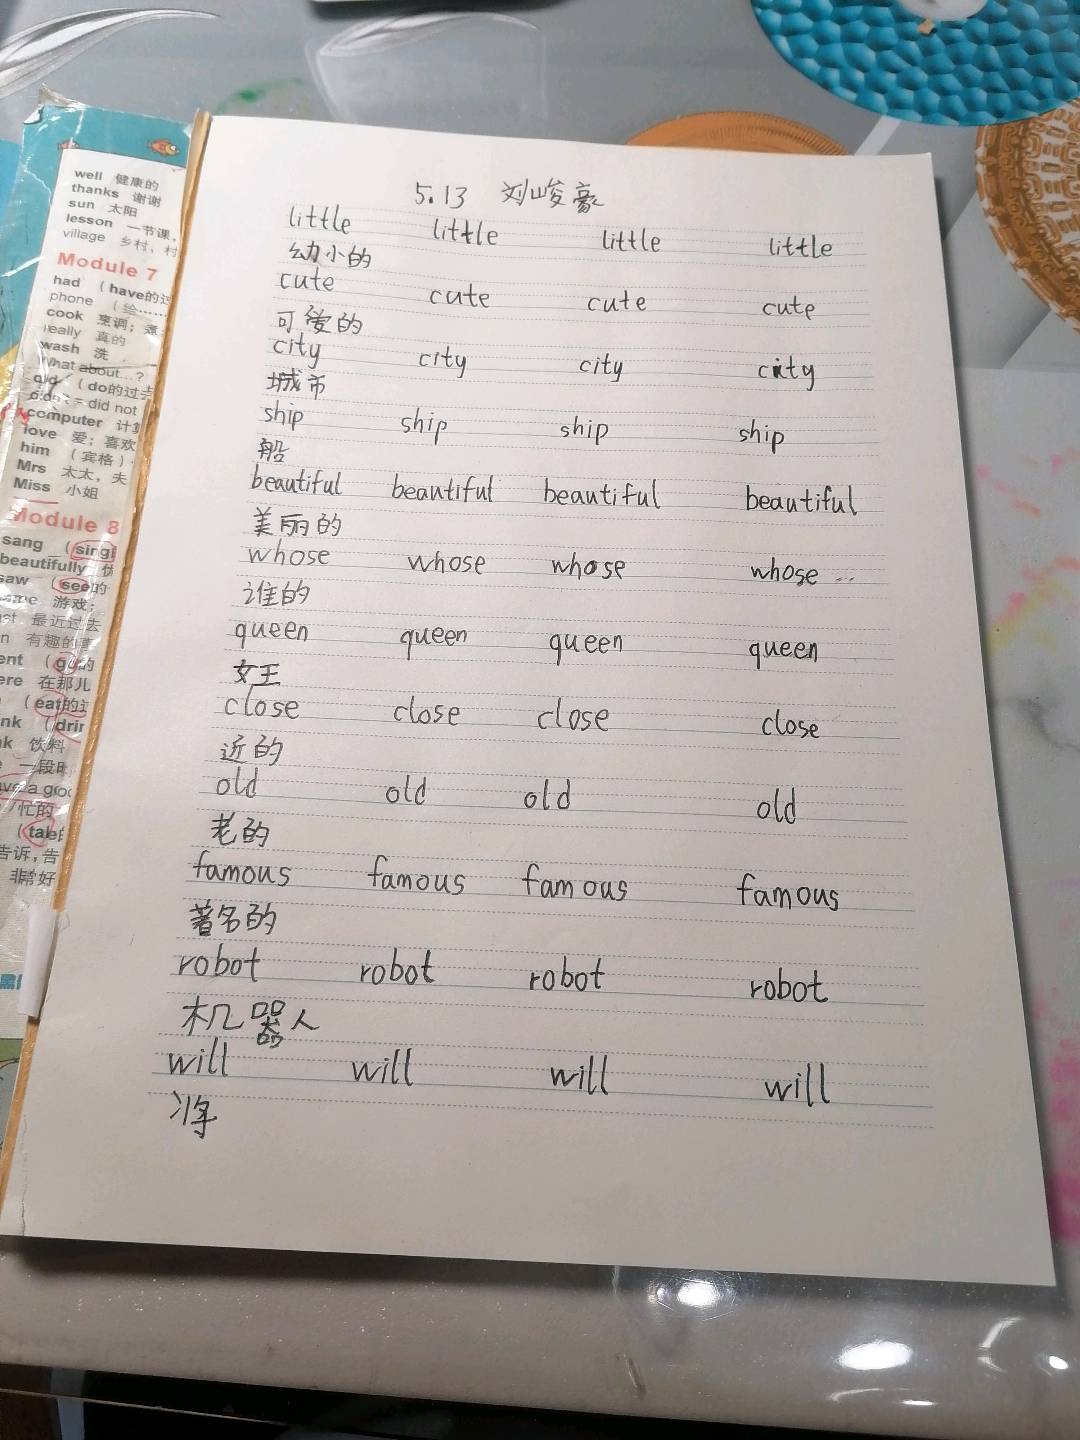 well 健康的
thanks 谢谢
sun 太阳
lesson 一节课,
village 乡村、村
Module 7
had (have的过
phone (给……
cook 烹调;煮
really 真的
wash 洗
What about...?
did (do的过去
didn't = did not
computer 计算
love 爱;喜欢
him (宾格)
Mrs 太太,夫
Miss 小姐
Module 8
sang (sing
beautifully 优
saw (see的
game 游戏;
最近过去
有趣的
ent (go的
ere 在那儿
(eat的过
nk (drin
nk 饮料
一段时
ave a goo
忙的
(take的
告诉,告
非常好
5.13 刘峻豪
little little little little
幼小的
cute cute cute cute
可爱的
city city city city
城市
ship ship ship ship
船
beautiful beautiful beautiful beautiful
美丽的
whose whose whose whose
谁的
queen queen queen queen
女王
close close close close
近的
old old old old
老的
famous famous famous famous
著名的
robot robot robot robot
机器人
will will will will
将